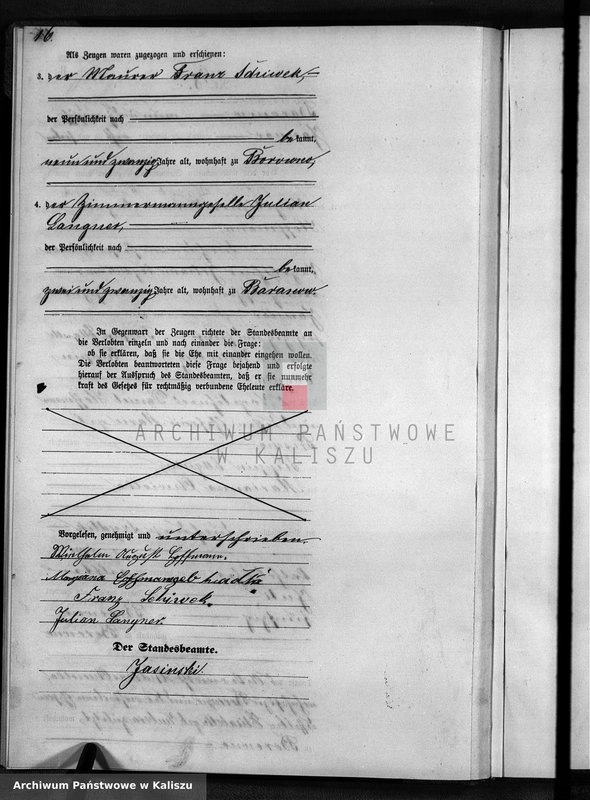 16.
Als Zeugen waren zugezogen und erschienen:
3. der Maurer Franz Schiwek,
der Persönlichkeit nach
bekannt,
neun und zwanzig Jahre alt, wohnhaft zu Borowno,
4. der Zimmermanngeselle Julian
Langner,
der Persönlichkeit nach
bekannt,
zwei und zwanzig Jahre alt, wohnhaft zu Baranow.
In Gegenwart der Zeugen richtete der Standesbeamte an
die Verlobten einzeln und nach einander die Frage:
ob sie erklären, daß sie die Ehe mit einander eingehen wollen.
Die Verlobten beantworteten diese Frage bejahend und erfolgte
hierauf der Ausspruch des Standesbeamten, daß er sie nunmehr
kraft des Gesetzes für rechtmäßig verbundene Eheleute erkläre.
ARCHIWUM PAŃSTWOWE
W KALISZU
Vorgelesen, genehmigt und unterschrieben.
Wilhelm August Hoffmann.
Maryana Hoffmann geb
Franz Schiwek.
Julian Langner.
Der Standesbeamte.
Jasinski.
Archiwum Państwowe w Kaliszu